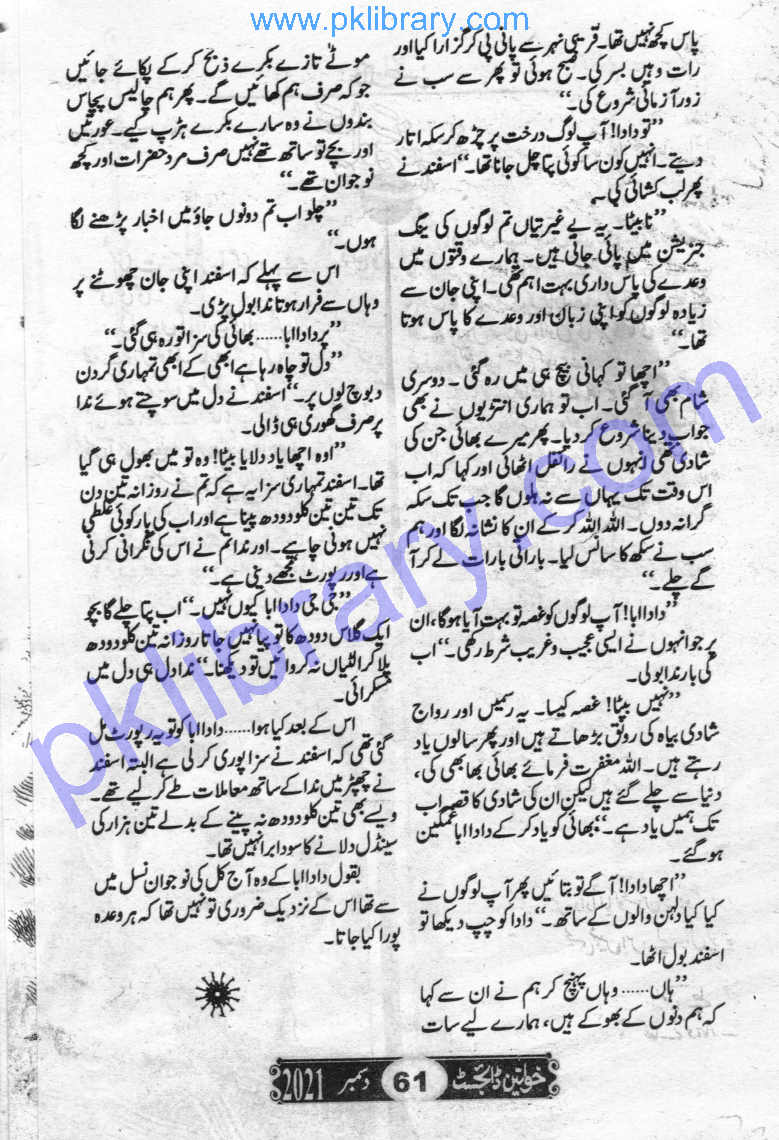 www.pklibrary.com
پاس کچھ نہیں تھا۔ قریبی نہر سے پانی پی کر گزارا کیا اور
رات وہیں بسر کی۔ صبح ہوئی تو پھر سے سب نے
زور آزمائی شروع کی۔‘‘
’’تو دادا! آپ لوگ درخت پر چڑھ کر سکہ اتار
دیتے۔ انہیں کون سا کوئی پتا چل جانا تھا۔‘‘ اسفند نے
پھر لب کشائی کی۔
’’نا بیٹا۔ یہ بے غیرتیاں تم لوگوں کی ینگ
جنریشن میں پائی جاتی ہیں۔ ہمارے وقتوں میں
وعدے کی پاس داری بہت اہم تھی۔ اپنی جان سے
زیادہ لوگوں کو اپنی زبان اور وعدے کا پاس ہوتا
تھا۔‘‘
’’اچھا تو کہانی بیچ ہی میں رہ گئی۔ دوسری
شام بھی آ گئی۔ اب تو ہماری انتڑیوں نے بھی
جواب دینا شروع کر دیا۔ پھر میرے بھائی جن کی
شادی تھی انہوں نے رائفل اٹھائی اور کہا کہ اب
اس وقت تک یہاں سے نہ ہلوں گا جب تک سکہ
گرا نہ دوں۔ اللہ اللہ کر کے ان کا نشانہ لگا اور ہم
سب نے سکھ کا سانس لیا۔ باراتی بارات لے کر آ
گے چلے۔‘‘
’’دادا ابا! آپ لوگوں کو غصہ تو بہت آیا ہوگا، ان
پر جو انہوں نے ایسی عجیب و غریب شرط رکھی۔‘‘ اب
کی بار ندا بولی۔
’’نہیں بیٹا! غصہ کیسا۔ یہ رسمیں اور رواج
شادی بیاہ کی رونق بڑھاتے ہیں اور پھر سالوں یاد
رہتے ہیں۔ اللہ مغفرت فرمائے بھائی بھابھی کی،
دنیا سے چلے گئے ہیں لیکن ان کی شادی کا قصہ اب
تک ہمیں یاد ہے۔‘‘ بھائی کو یاد کر کے دادا ابا غمگین
ہو گئے۔
’’اچھا دادا! آگے تو بتائیں پھر آپ لوگوں نے
کیا کیا دلہن والوں کے ساتھ۔‘‘ دادا کو چپ دیکھا تو
اسفند بول اٹھا۔
’’ہاں...... وہاں پہنچ کر ہم نے ان سے کہا
کہ ہم دنوں کے بھوکے ہیں، ہمارے لیے سات
موٹے تازے بکرے ذبح کر کے پکائے جائیں
جو کہ صرف ہم کھائیں گے۔ پھر ہم چالیس پچاس
بندوں نے وہ سارے بکرے ہڑپ کیے۔ عورتیں
اور بچے تو ساتھ تھے نہیں صرف مرد حضرات اور کچھ
نوجوان تھے۔‘‘
’’چلو اب تم دونوں جاؤ میں اخبار پڑھنے لگا
ہوں۔‘‘
اس سے پہلے کہ اسفند اپنی جان چھوٹنے پر
وہاں سے فرار ہوتا ندا بول پڑی۔
’’پر دادا ابا...... بھائی کی سزا تو رہ ہی گئی۔‘‘
’’دل تو چاہ رہا ہے ابھی کے ابھی تمہاری گردن
دبوچ لوں پر۔‘‘ اسفند نے دل میں سوچتے ہوئے ندا
پر صرف گھوری ہی ڈالی۔
’’اوہ اچھا یاد دلایا بیٹا! وہ تو میں بھول ہی گیا
تھا۔ اسفند تمہاری سزا یہ ہے کہ تم نے روزانہ تین دن
تک تین تین کلو دودھ پینا ہے اور اب کی بار کوئی غلطی
نہیں ہونی چاہیے۔ اور ندا تم نے اس کی نگرانی کرنی
ہے اور رپورٹ مجھے دینی ہے۔‘‘
’’جی جی دادا ابا کیوں نہیں۔‘‘ اب پتا چلے گا بچو
ایک گلاس دودھ کا تو پیا نہیں جاتا روزانہ تین کلو دودھ
پلا کر الٹیاں نہ کروائیں تو دیکھنا۔‘‘ ندا دل ہی دل میں
مسکرائی۔
اس کے بعد کیا ہوا...... دادا ابا کو تو یہ رپورٹ مل
گئی تھی کہ اسفند نے سزا پوری کر لی ہے البتہ اسفند
نے چھپڑ میں ندا کے ساتھ معاملات طے کر لیے تھے۔
ویسے بھی تین کلو دودھ نہ پینے کے بدلے تین ہزار کی
سینڈل دلانے کا سودا برا نہیں تھا۔
بقول دادا ابا کے وہ آج کل کی نوجوان نسل میں
سے تھا اس کے نزدیک ضروری تو نہیں تھا کہ ہر وعدہ
پورا کیا جاتا۔
pklibrary.com
خواتین ڈائجسٹ 61 دسمبر 2021